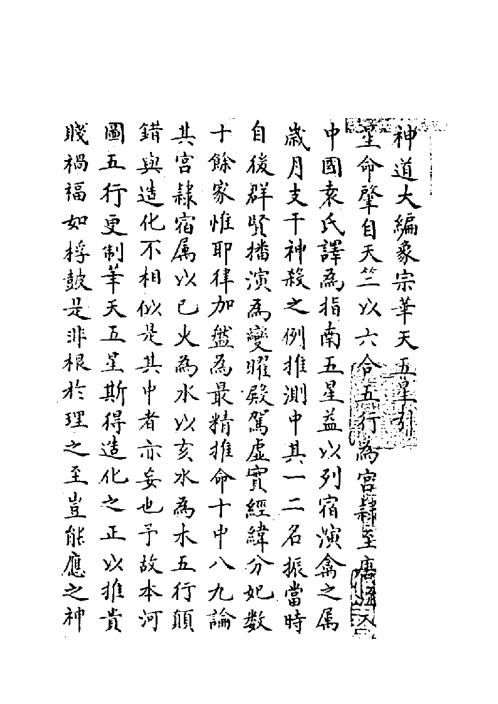 神道大編象宗華天五星引
星命肇自天竺以六合五行為宮隸至唐
中國袁氏譯為指南五星益以列宿演禽之属
歲月支干神殺之例推測中其一二名振當時
自後群賢播演為變曜殿駕虛實經緯分妃數
十餘家惟耶律加盤為最精推命十中八九論
其宮隸宿属以巳火為水以亥水為木五行顛
錯與造化不相似是其中者亦妄也予故本河
圖五行更制華天五星斯得造化之正以推貴
賤禍福如桴鼓是非根於理之至豈能應之神